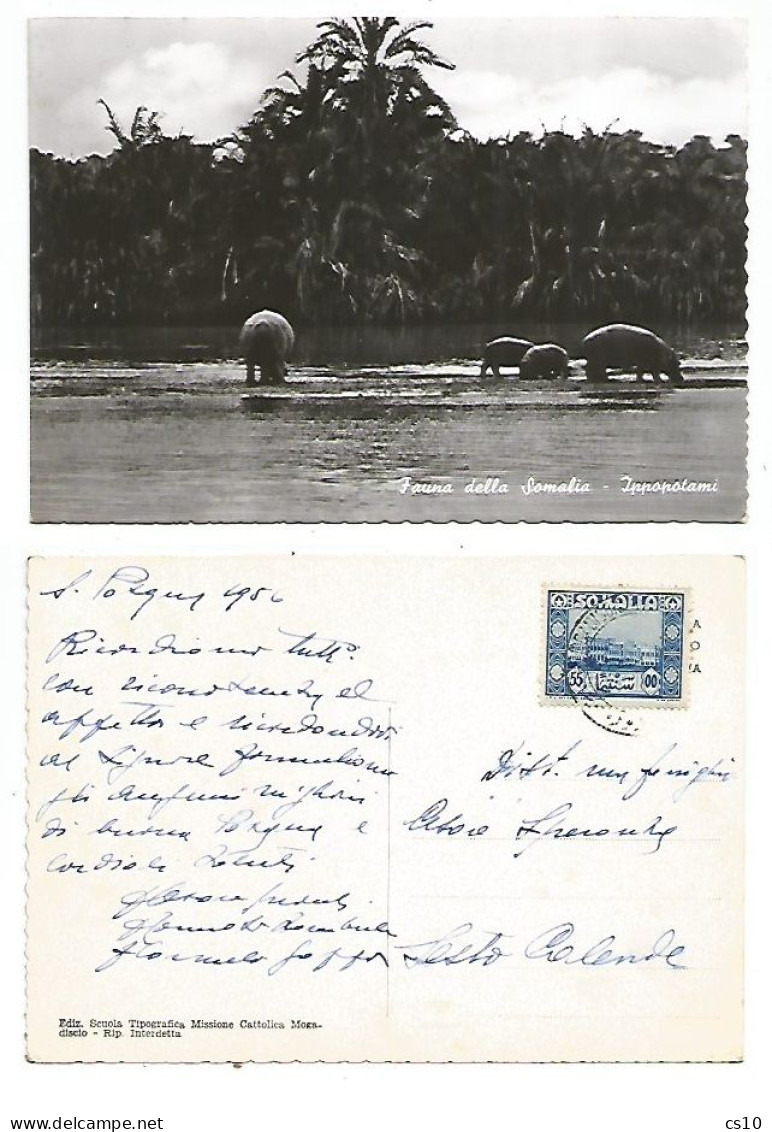 Fauna della Somalia - Ippopotami
S. Pasqua 1956
Ricordiamo tutti
con riconoscenza ed
affetto e ricordandovi
al Signore formuliamo
gli auguri migliori
di buona Pasqua e
cordiali saluti
SOMALIA
55 00
Distt. ma famiglia
Speranza
Sesto Calende
Ediz. Scuola Tipografica Missione Cattolica Moga-
discio - Rip. Interdetta
cs10